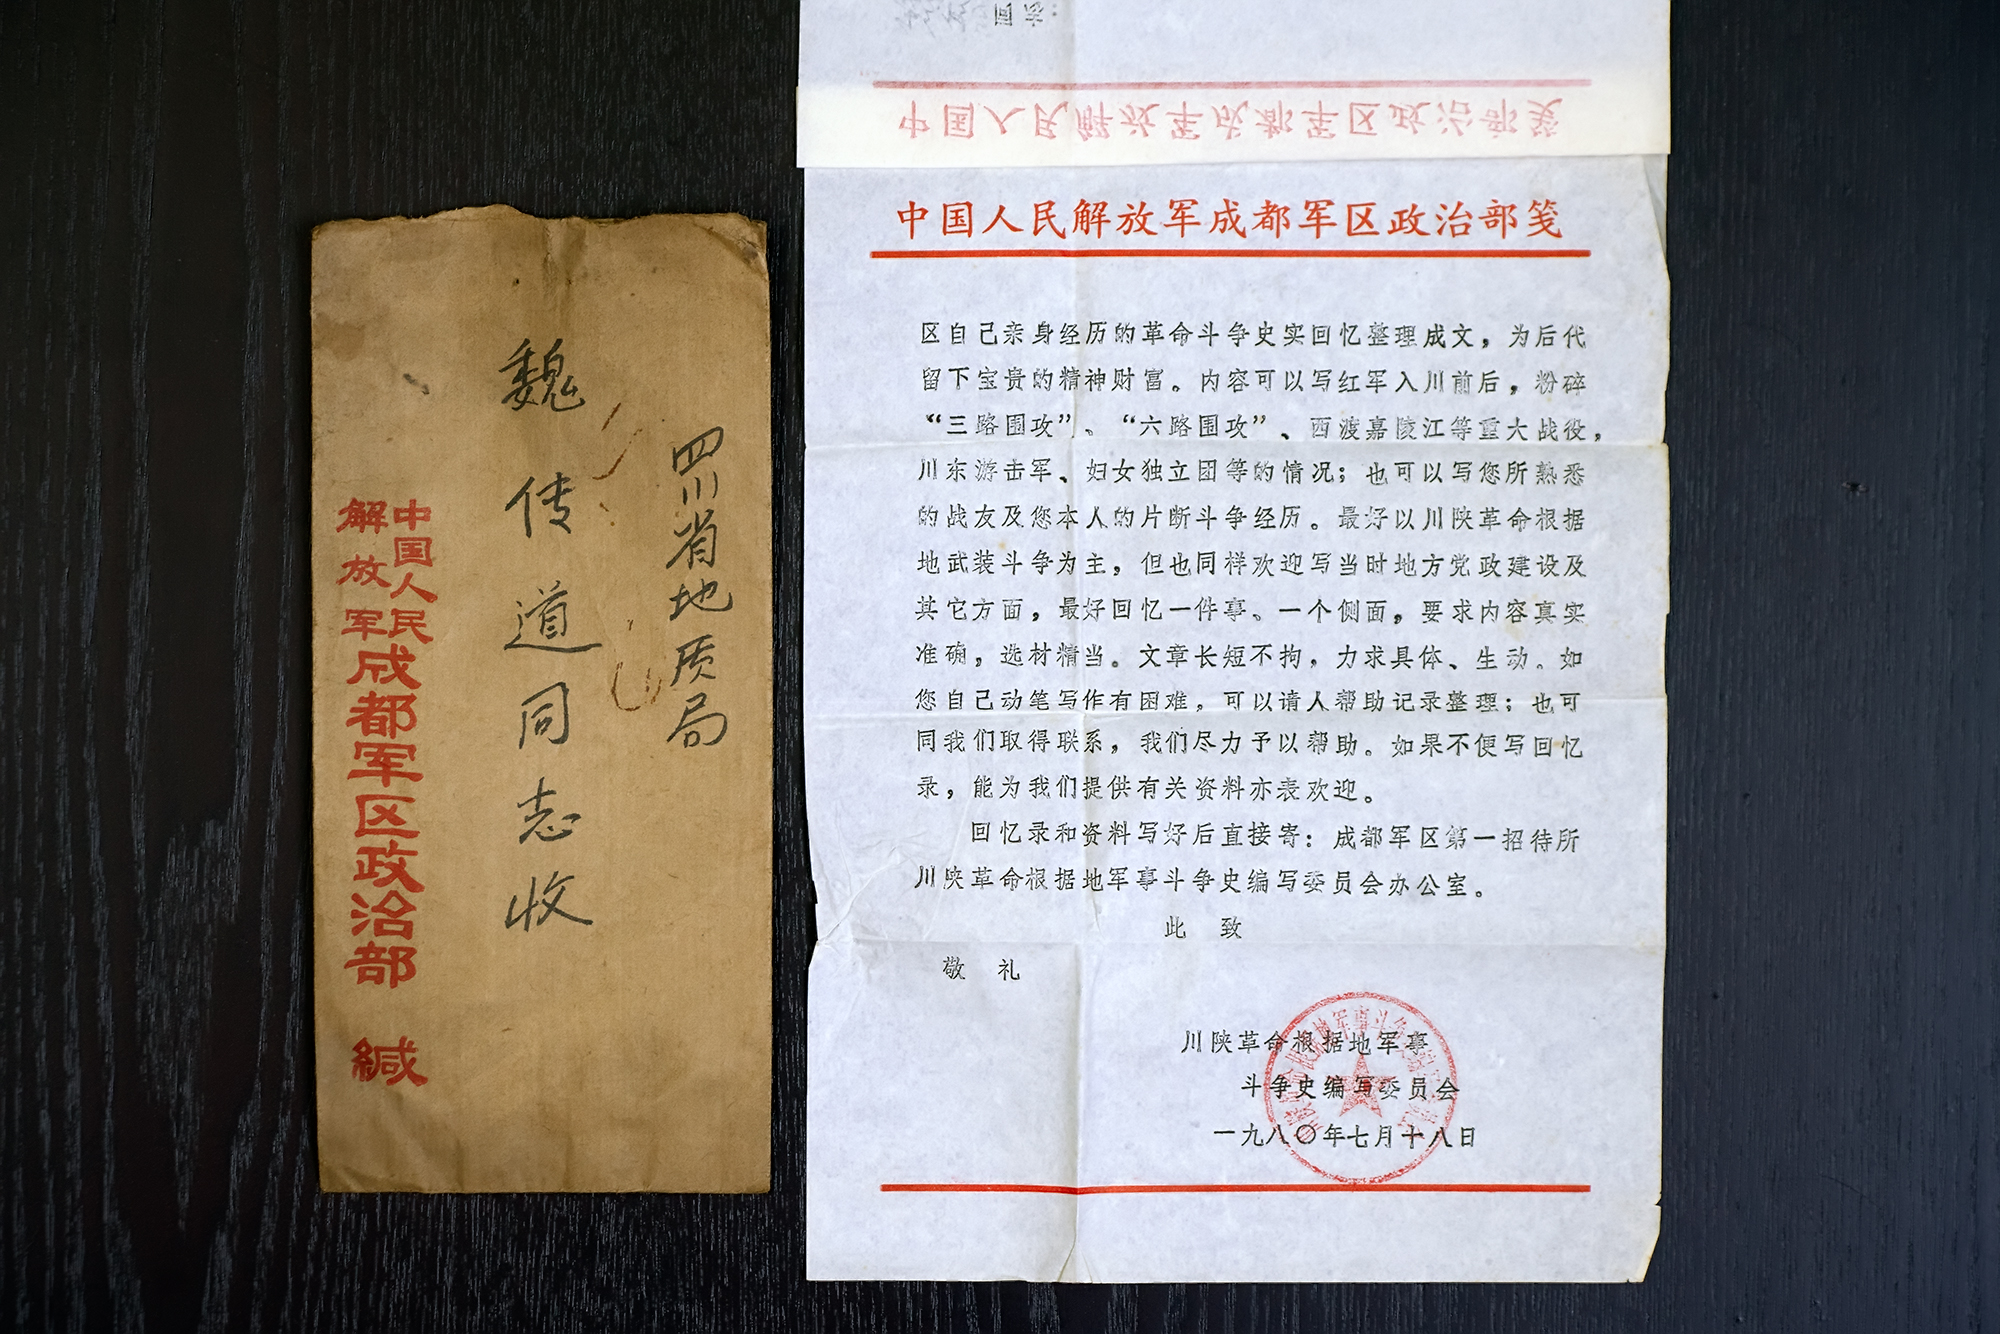 四川省地质局
魏传道同志收
中国人民
解放军成都军区政治部 缄
同志:
中国人民解放军成都军区政治部笺
中国人民解放军成都军区政治部笺
区自己亲身经历的革命斗争史实回忆整理成文，为后代
留下宝贵的精神财富。内容可以写红军入川前后，粉碎
“三路围攻”、“六路围攻”、西渡嘉陵江等重大战役，
川东游击军、妇女独立团等的情况；也可以写您所熟悉
的战友及您本人的片断斗争经历。最好以川陕革命根据
地武装斗争为主，但也同样欢迎写当时地方党政建设及
其它方面，最好回忆一件事、一个侧面，要求内容真实
准确，选材精当。文章长短不拘，力求具体、生动。如
您自己动笔写作有困难，可以请人帮助记录整理；也可
同我们取得联系，我们尽力予以帮助。如果不便写回忆
录，能为我们提供有关资料亦表欢迎。
回忆录和资料写好后直接寄：成都军区第一招待所
川陕革命根据地军事斗争史编写委员会办公室。
此 致
敬 礼
川陕革命根据地军事
斗争史编写委员会
一九八〇年七月十八日